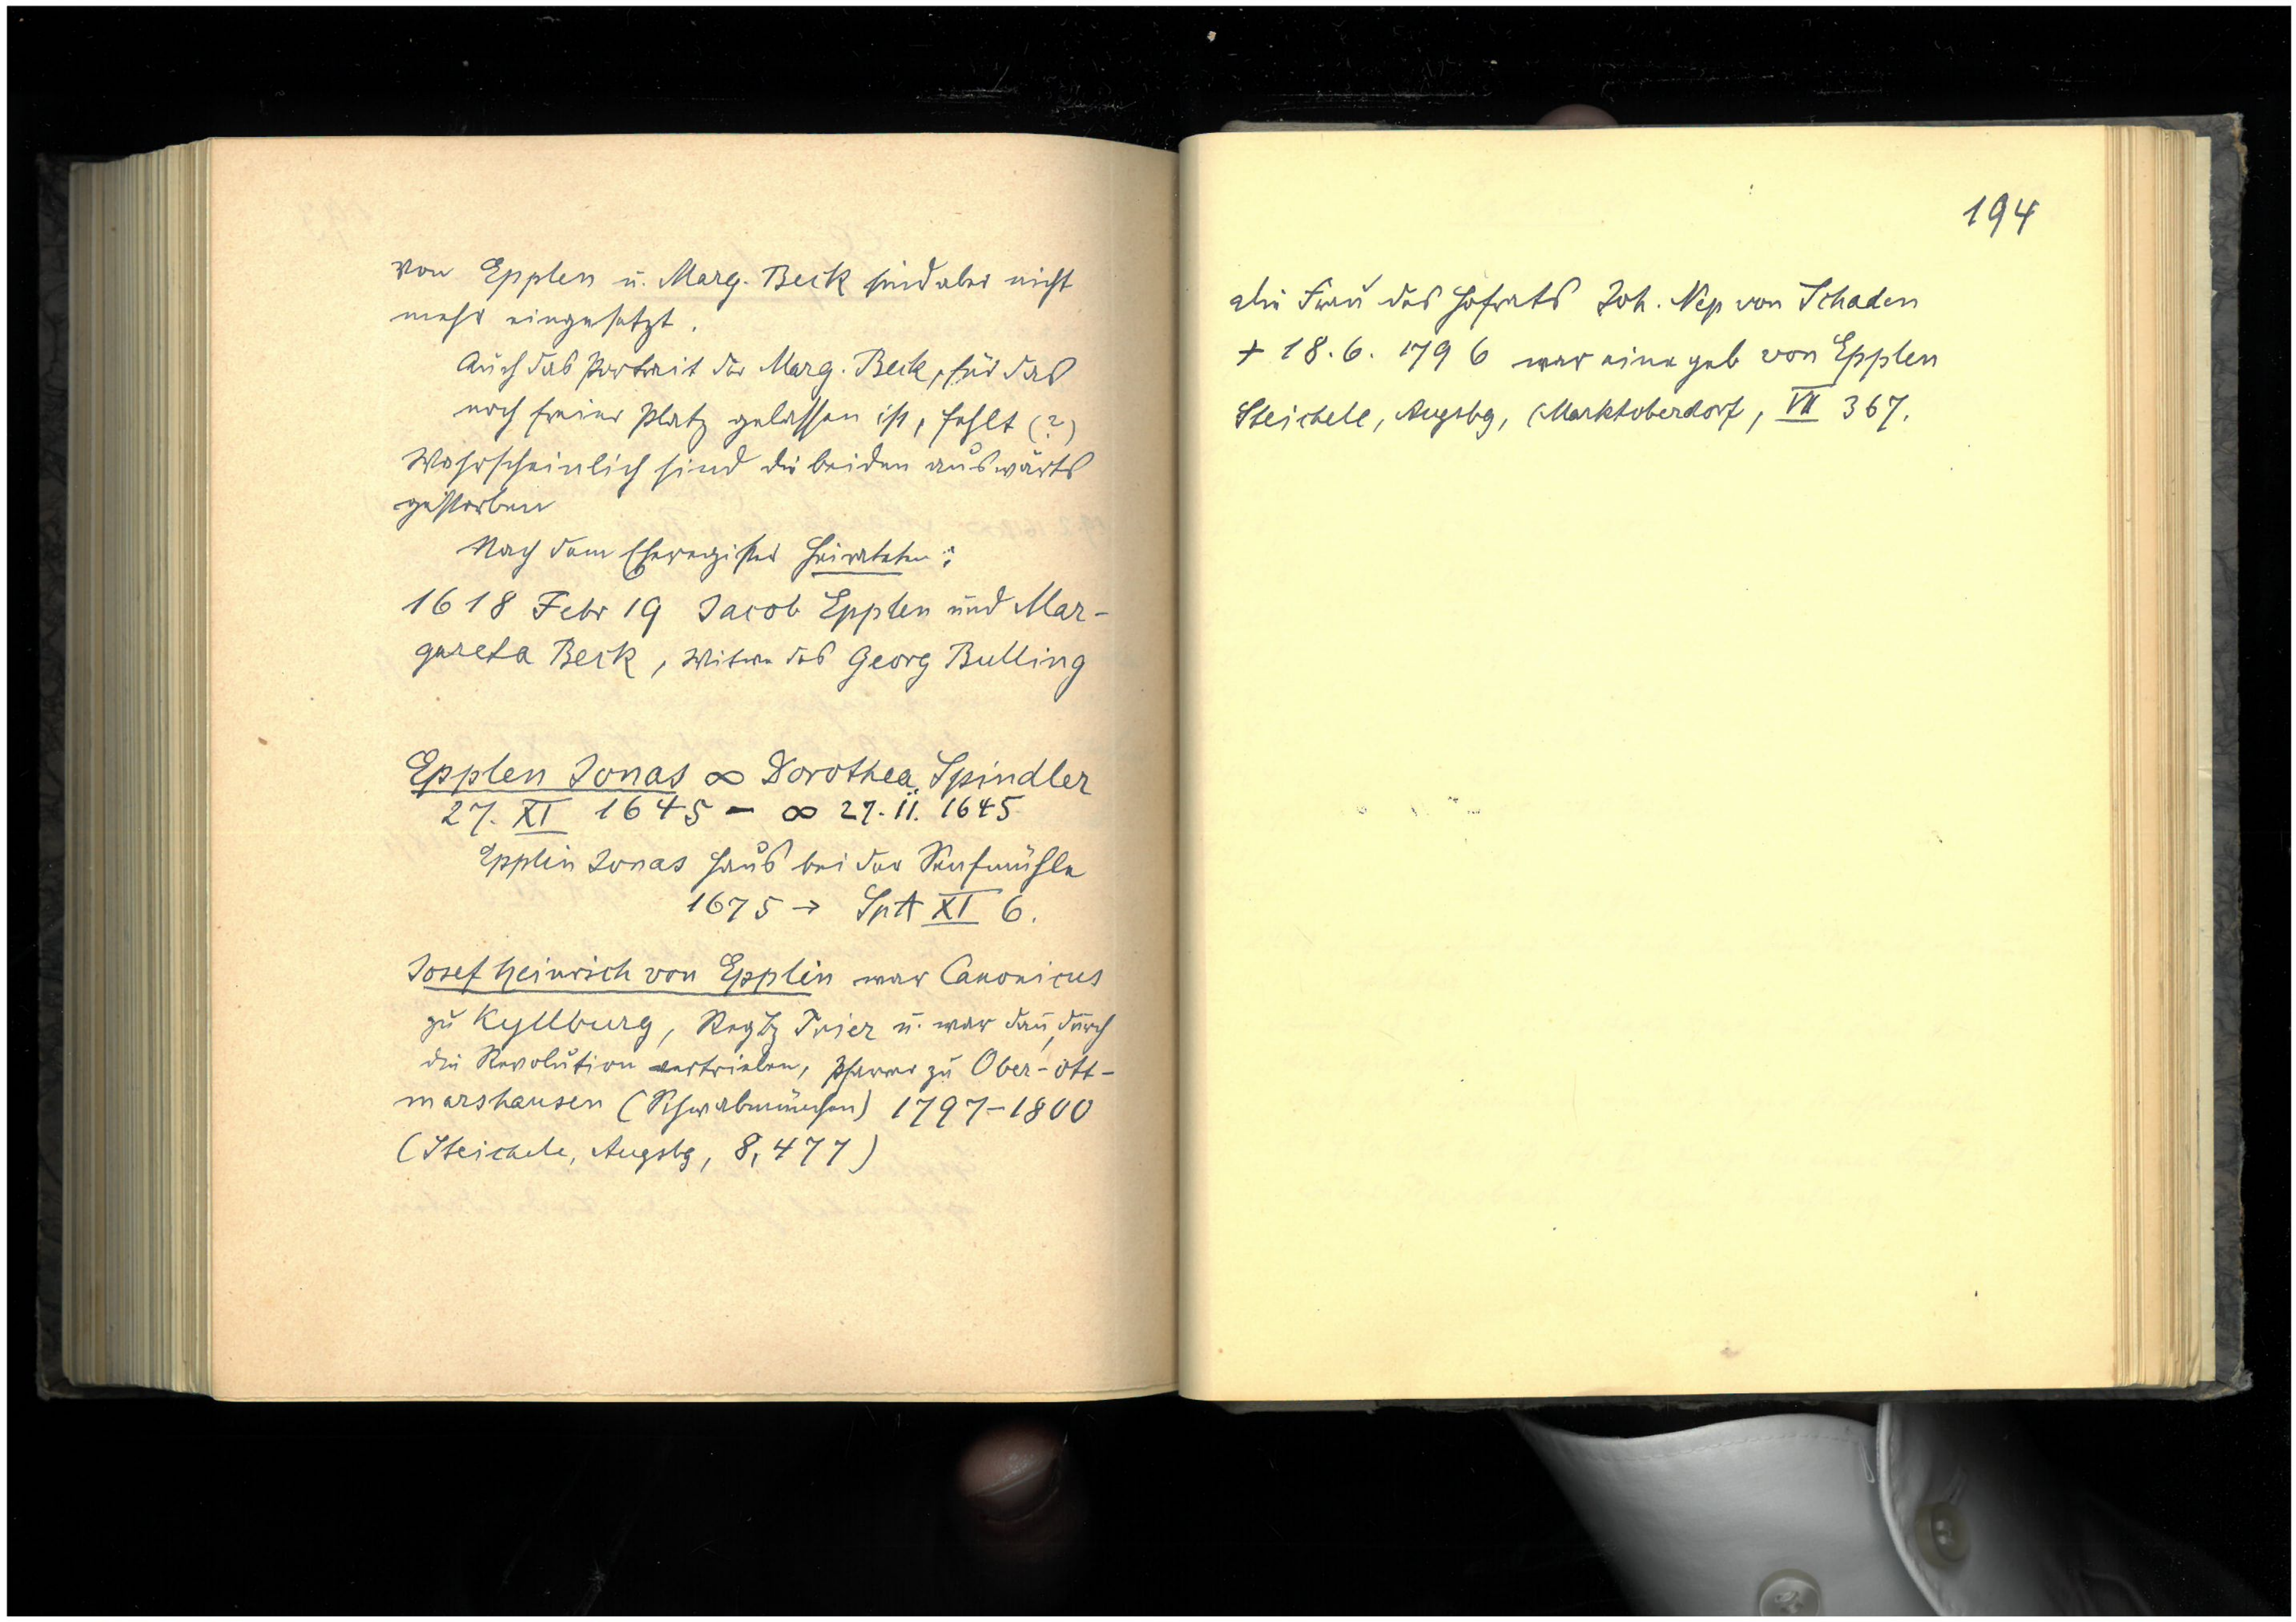 von Epplen u. Marg. Beck sind aber nicht
mehr eingesetzt.
Auch das Portrait der Marg. Beck, für das
noch freier Platz gelassen ist, fehlt (?)
Wahrscheinlich sind die beiden auswärts
gestorben
Nach dem Eheregister heirateten:
1618 Febr 19 Jacob Epplen und Mar-
gareta Beck, Witwe des Georg Bulling
Epplen Jonas ∞ Dorothea Spindler
27. XI 1645 – ∞ 27. 11. 1645
Epplin Jonas Haus bei der Senfmühle
1675 → SptA XI 6.
Josef Heinrich von Epplin war Canonicus
zu Kyllburg, Regbz Trier u. war dan̄, durch
die Revolution vertrieben, Pfarrer zu Ober-ott-
marshausen (Schwabmünchen) 1797–1800
(Steichele, Augsbg, 8, 477)
194
die Frau des Hofrats Joh. Nep von Schaden
+ 18. 6. 1796 war eine geb von Epplen
Steichele, Augsbg, (Marktoberdorf, VII 367.